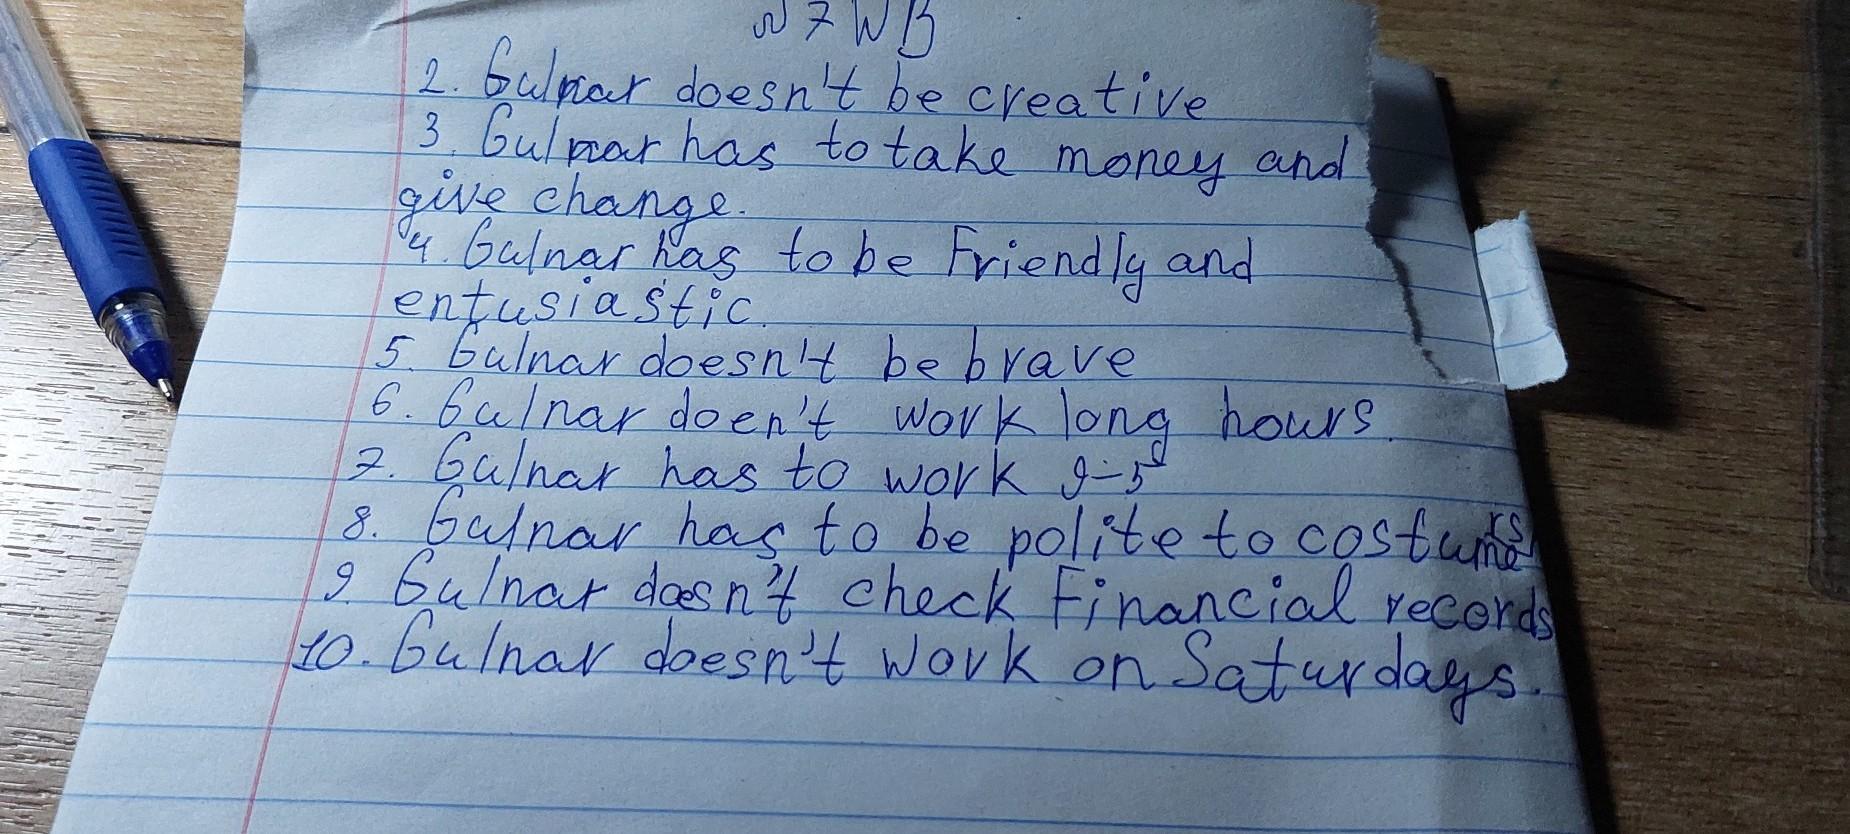 № 7 WB
2. Gulnar doesn't be creative
3. Gulnar has to take money and
give change.
4. Gulnar has to be Friendly and
entusiastic.
5. Gulnar doesn't be brave
6. Gulnar doen't work long hours.
7. Gulnar has to work 9-5
8. Gulnar has to be polite to costumers
9. Gulnar doesn't check Financial records
10. Gulnar doesn't work on Saturdays.